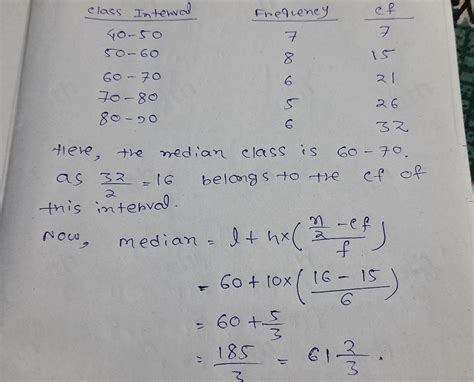 Class Interval Frequency cf
40-50 7 7
50-60 8 15
60-70 6 21
70-80 5 26
80-90 6 32
Here, the median class is 60-70.
as 32/2 = 16 belongs to the cf of
this interval.
Now, median = l + h×((n/2 - cf)/f)
= 60 + 10×((16 - 15)/6)
= 60 + 5/3
= 185/3 = 61 2/3 .